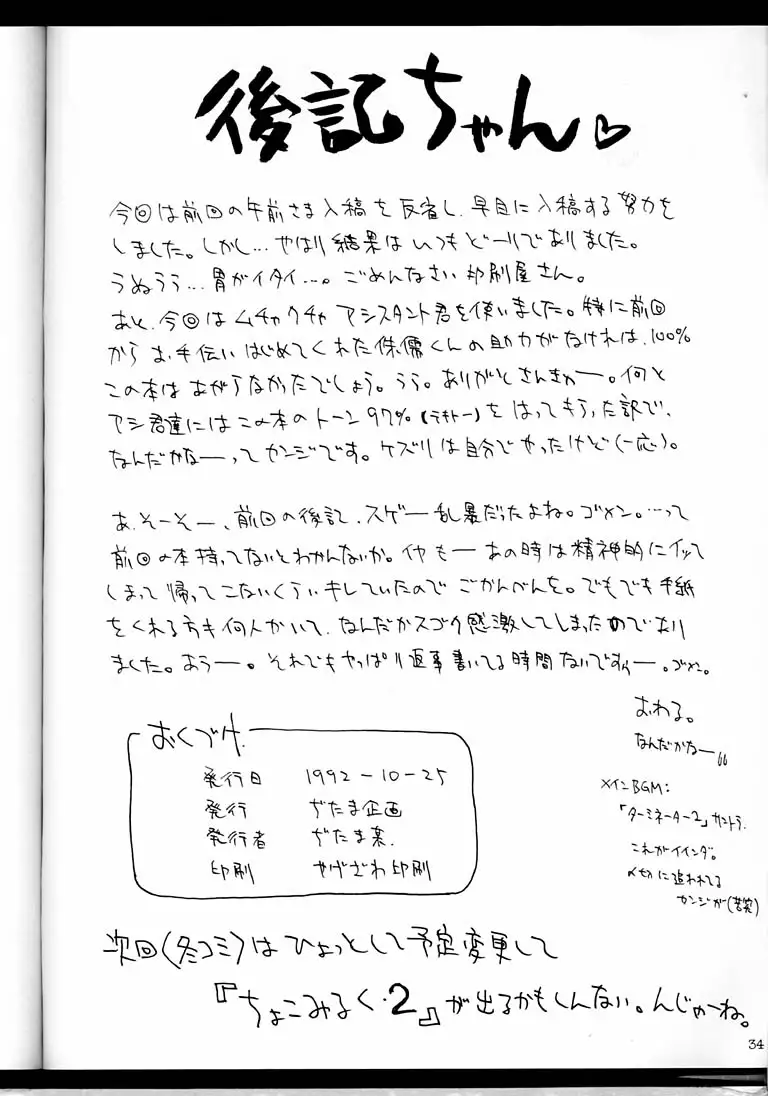 後記ちゃん♡
今回は前回の午前さま入稿を反省し、早目に入稿する努力を
しました。しかし…やはり結果はいつもどーりでありました。
うぬうう…胃がイタイ…。ごめんなさい印刷屋さん。
あと、今回はムチャクチャアシスタント君を使いました。特に前回
からお手伝いはじめてくれた侏儒くんの助力がなければ、100%
この本はあがらなかったでしょう。うう。ありがとさんきゅー。何と
アシ君達にはこの本のトーン97%(テキトー)をはってもらった訳で、
なんだかなーってカンジです。ケズリは自分でやったけど(一応)。
あ、そーそー、前回の後記、スゲー乱暴だったよね。ゴメン。…って
前回の本持ってないとわかんないか。イヤもーあの時は精神的にイッて
しまって帰ってこないくらいキしていたのでごかんべんを。でもでも手紙
をくれる方も何人かいて、なんだかスゴク感激してしまったのであり
ました。あうー。それでもやっぱり返事書いてる時間ないですぅー。ゴメン。
おわる。
なんだかなー
メインBGM:
「ターミネーター2」サントラ.
これがイインダ。
〆切に追われてる
カンジが(苦笑)
おくづけ
発行日 1992-10-25
発行 ぢたま企画
発行者 ぢたま某.
印刷 やげざわ印刷
次回(冬コミ)はひょっとして予定変更して
『ちょこみるく・2』が出るかもしんない。んじゃーね。
34